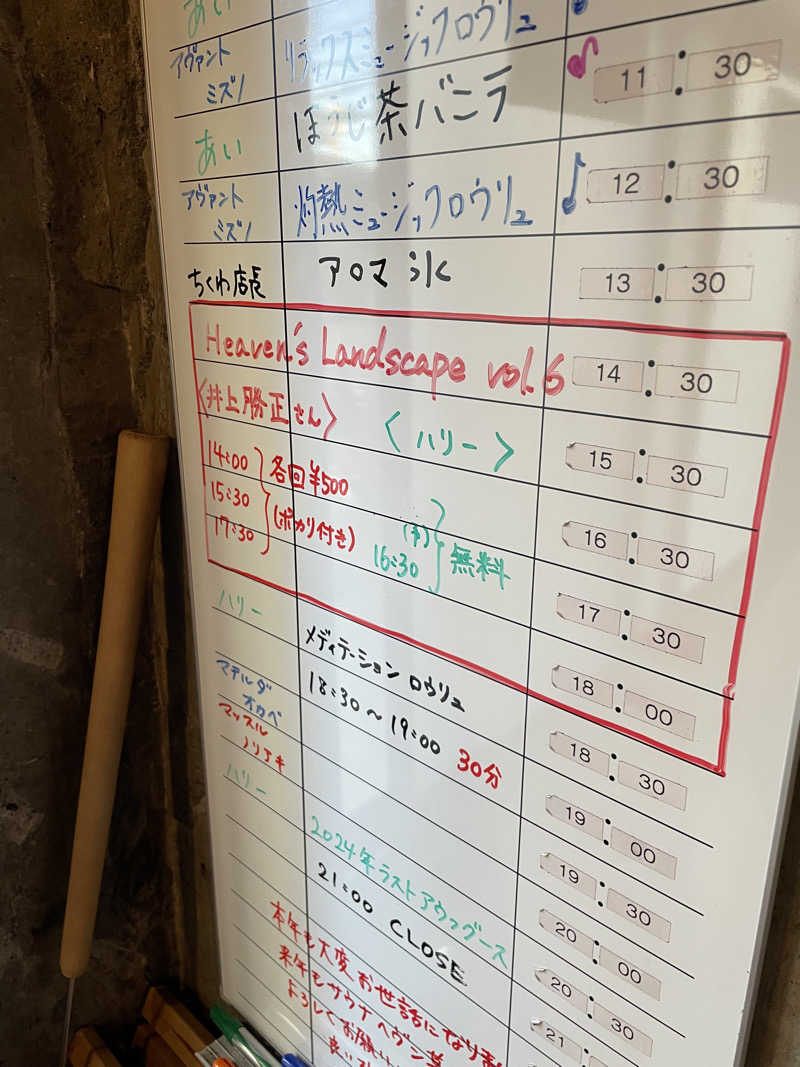 あい
アヴァント ミズノ
リラックスミュージックロウリュ
あい
ほうじ茶バニラ
11:30
アヴァント ミズノ
灼熱ミュージックロウリュ
12:30
ちくわ店長
アロマ氷
13:30
Heaven's Landscape vol.6
14:30
<井上勝正さん>
<ハリー>
15:30
14:00
15:30
17:30
各回¥500
(ポカリ付き)
16:30
無料
16:30
17:30
18:00
ハリー
メディテーション ロウリュ
18:30～19:00 30分
18:30
マチルダ オカベ
19:00
マッスル ノリアキ
19:30
ハリー
2024年ラストアウフグース
20:00
21:00 CLOSE
20:30
21:
本年も大変お世話になりま
来年もサウナヘヴン草
よろしくお願い